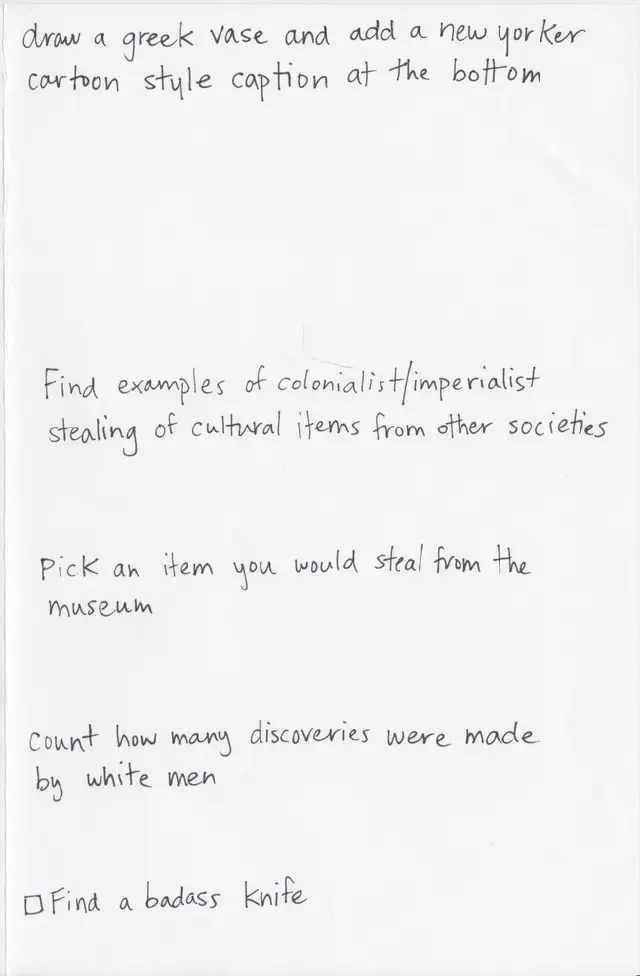 draw a greek vase and add a new yorker
cartoon style caption at the bottom
Find examples of colonialist/imperialist
stealing of cultural items from other societies
Pick an item you would steal from the
museum
count how many discoveries were made
by white men
□ Find a badass knife